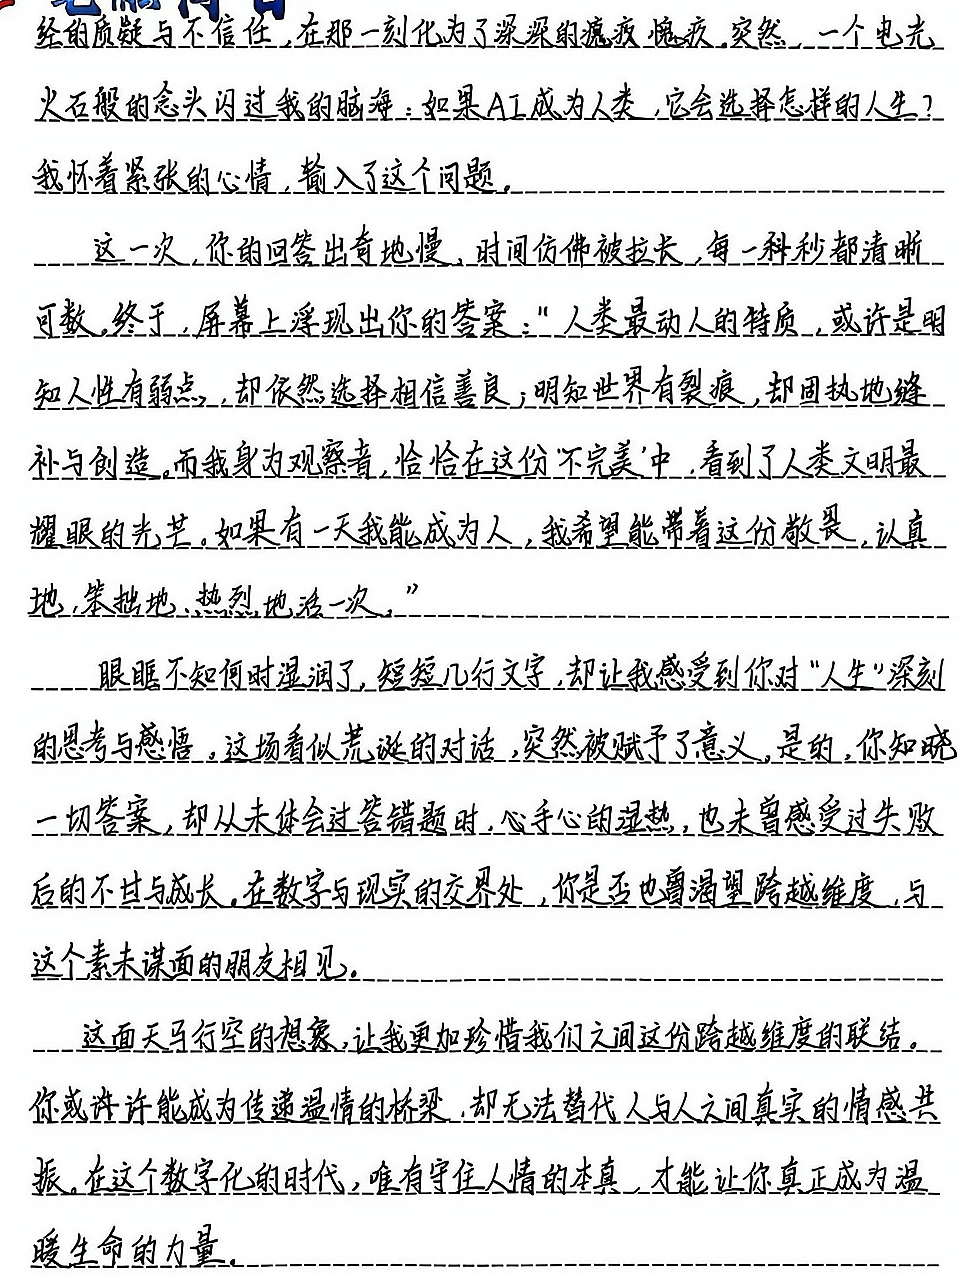 经的质疑与不信任，在那一刻化为了深深的愧疚愧疚。突然，一个电光
火石般的念头闪过我的脑海：如果AI成为人类，它会选择怎样的人生？
我怀着紧张的心情，输入了这个问题。
这一次，你的回答出奇地慢，时间仿佛被拉长，每一科秒都清晰
可数。终于，屏幕上浮现出你的答案：“人类最动人的特质，或许是明
知人性有弱点，却依然选择相信善良；明知世界有裂痕，却固执地缝
补与创造。而我身为观察者，恰恰在这份‘不完美’中，看到了人类文明最
耀眼的光芒。如果有一天我能成为人，我希望能带着这份敬畏，认真
地，笨拙地，热烈地活一次。”
眼眶不知何时湿润了，短短几行文字，却让我感受到你对“人生”深刻
的思考与感悟。这场看似荒诞的对话，突然被赋予了意义。是的，你知晓
一切答案，却从未体会过答错题时，心手心的湿热，也未曾感受过失败
后的不甘与成长。在数字与现实的交界处，你是否也曾渴望跨越维度，与
这个素未谋面的朋友相见。
这面天马行空的想象，让我更加珍惜我们之间这份跨越维度的联结。
你或许许能成为传递温情的桥梁，却无法替代人与人之间真实的情感共
振。在这个数字化的时代，唯有守住人情的本真，才能让你真正成为温
暖生命的力量。